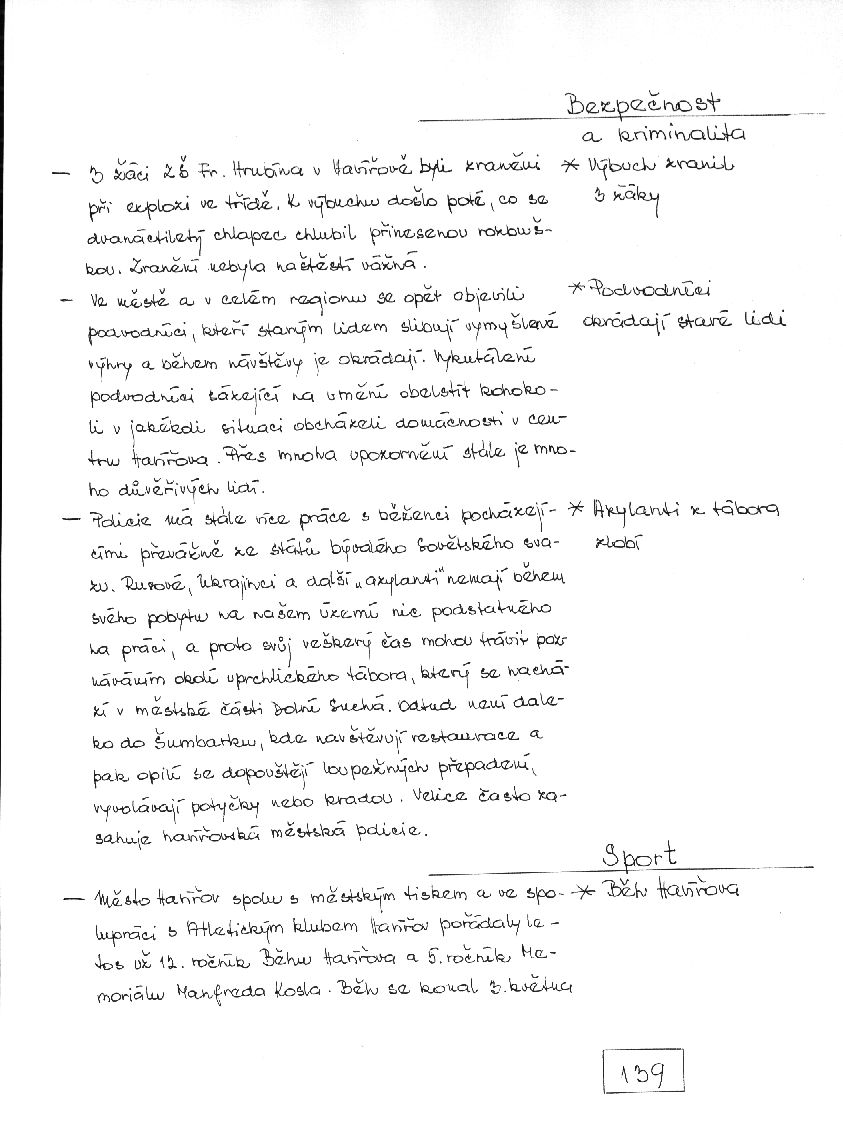 Bezpečnost
a kriminalita
— 3 žáci ZŠ Fr. Hrubína v Havířově byli zraněni * Výbuch zranil
při explozi ve třídě. K výbuchu došlo poté, co se 3 žáky
dvanáctiletý chlapec chlubil přinesenou rozbuš-
kou. Zranění nebyla naštěstí vážná.
— Ve městě a v celém regionu se opět objevili * Podvodníci
podvodníci, kteří starým lidem slibují vymyšlené okrádají staré lidi
výhry a během návštěvy je okrádají. Vykutálení
podvodníci sázející na umění obelstít kohoko-
li v jakékoli situaci obcházeli domácnosti v cen-
tru Havířova. Přes mnoha upozornění stále je mno-
ho důvěřivých lidí.
— Policie má stále více práce s běženci pocházejí- * Azylanti z tábora
cími převážně ze států bývalého Sovětského sva- zlobí
zu. Rusové, Ukrajinci a další „azylanti" nemají během
svého pobytu na našem území nic podstatného
na práci, a proto svůj veškerý čas mohou trávit poz-
náváním okolí uprchlického tábora, který se nachá-
zí v městské části Dolní Suchá. Odtud není dale-
ko do Šumbarku, kde navštěvují restaurace a
pak opilí se dopouštějí loupežných přepadení,
vyvolávají potyčky nebo kradou. Velice často za-
sahuje havířovská městská policie.
Sport
— Město Havířov spolu s městským tiskem a ve spo- * Běh Havířova
lupráci s Atletickým klubem Havířov pořádaly le-
tos už 12. ročník Běhu Havířova a 5. ročník Me-
moriálu Manfreda Kosla. Běh se konal 3. května
139